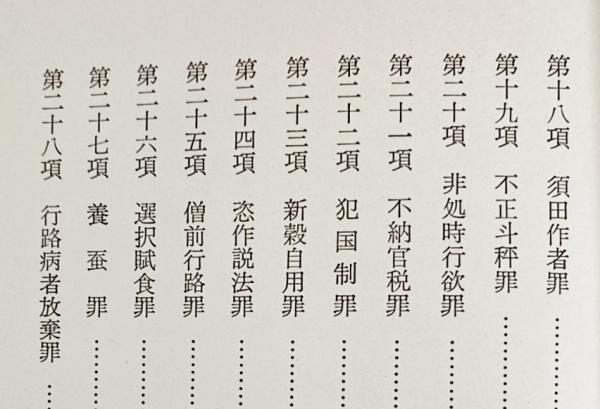 第十八項 須田作者罪…………
第十九項 不正斗秤罪…………
第二十項 非処時行欲罪…………
第二十一項 不納官税罪…………
第二十二項 犯国制罪…………
第二十三項 新穀自用罪…………
第二十四項 恣作説法罪…………
第二十五項 僧前行路罪…………
第二十六項 選択賦食罪…………
第二十七項 養蚕罪…………
第二十八項 行路病者放棄罪……